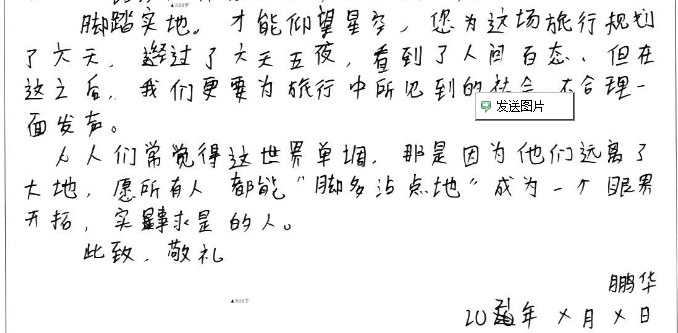 ▲600字
脚踏实地。才能仰望星空，您为这场旅行规划
了六天，经过了六天五夜，看到了人间百态、但在
这之后，我们更要为旅行中所见到的社会不合理一
面发声。
人们常觉得这世界单调，那是因为他们远离了
大地，愿所有人都能“脚多沾点地”成为一个眼界
开拓，实事求是的人。
此致，敬礼
鹏华
▲800字
20 年 X月X日
发送图片